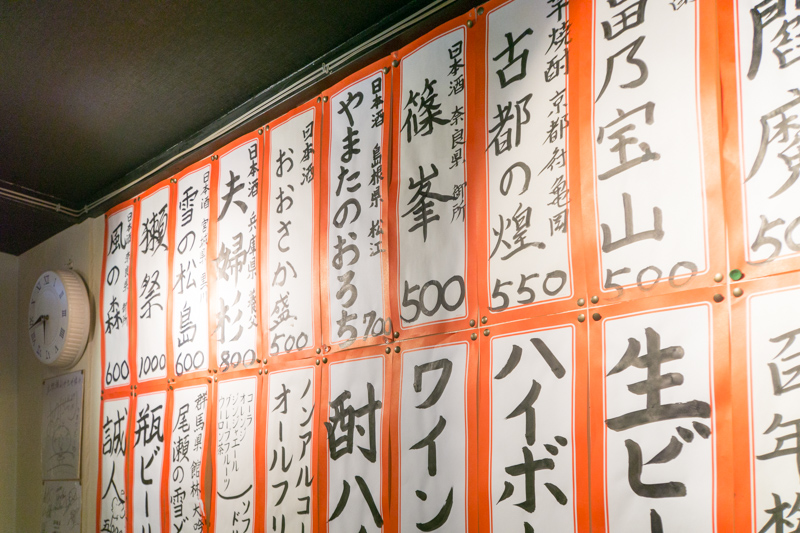 閻魔
50
富乃宝山
500
芋焼酎 京都府 亀岡
古都の煌
550
日本酒 奈良県 御所
篠峯
500
日本酒 島根県 松江
やまたのおろち
700
日本酒
おおさか盛
500
日本酒 兵庫県 養父
夫婦杉
800
日本酒 宮城県 黒川
雪の松島
600
獺祭
1000
日本酒 奈良県
風の森
600
百年
生ビー
ハイボ
ワイン
酎ハ
ノンアルコー
オールフリ
ソフ
ドル
コーラ
オレンジ
ジンジャエール
グレープフルーツ
ウーロン茶
群馬県 館林 大吟
尾瀬の雪ど
瓶ビー
誠人